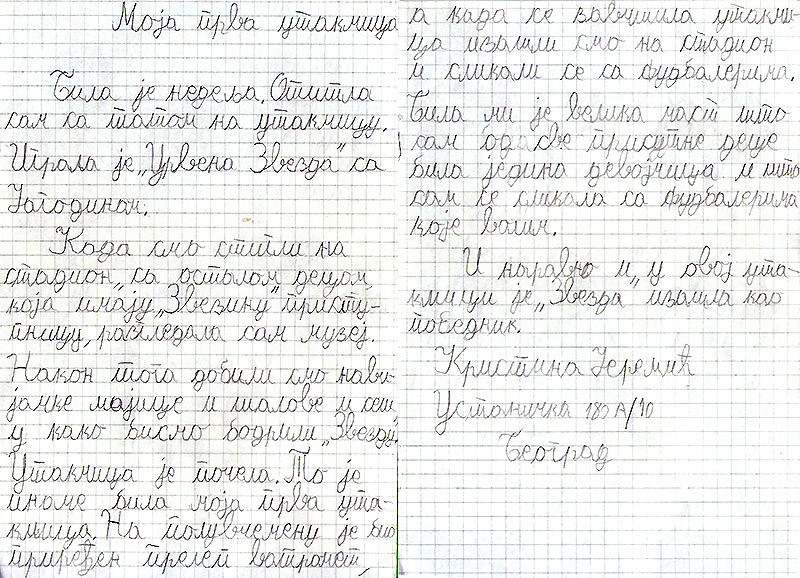 Моја прва утакмица
Била је недеља. Отишла
сам са татом на утакмицу.
Играла је „Црвена Звезда“ са
Јагодином.
Када смо стигли на
стадион, са осталом децом
која имају „Звезину“ присту-
пницу, разгледала сам музеј.
Након тога добили смо навиј-
јачке мајице и шалове и
у како бисмо бодрили „Звезду“.
Утакмица је почела. То је
иначе била моја прва ута-
кмица. На полувремену је био
приређен прелеп ватромет,
а када се завршила утакми-
ца изашли смо на стадион
и сликали се са фудбалерима.
Била ми је велика част што
сам од све присутне деце
била једина девојчица и што
сам се сликала са фудбалерима
које волим.
И наравно и, у овој ута-
кмици је „Звезда“ изашла као
победник.
Кристина Јеремић
Устаничка 182 А/10
Београд